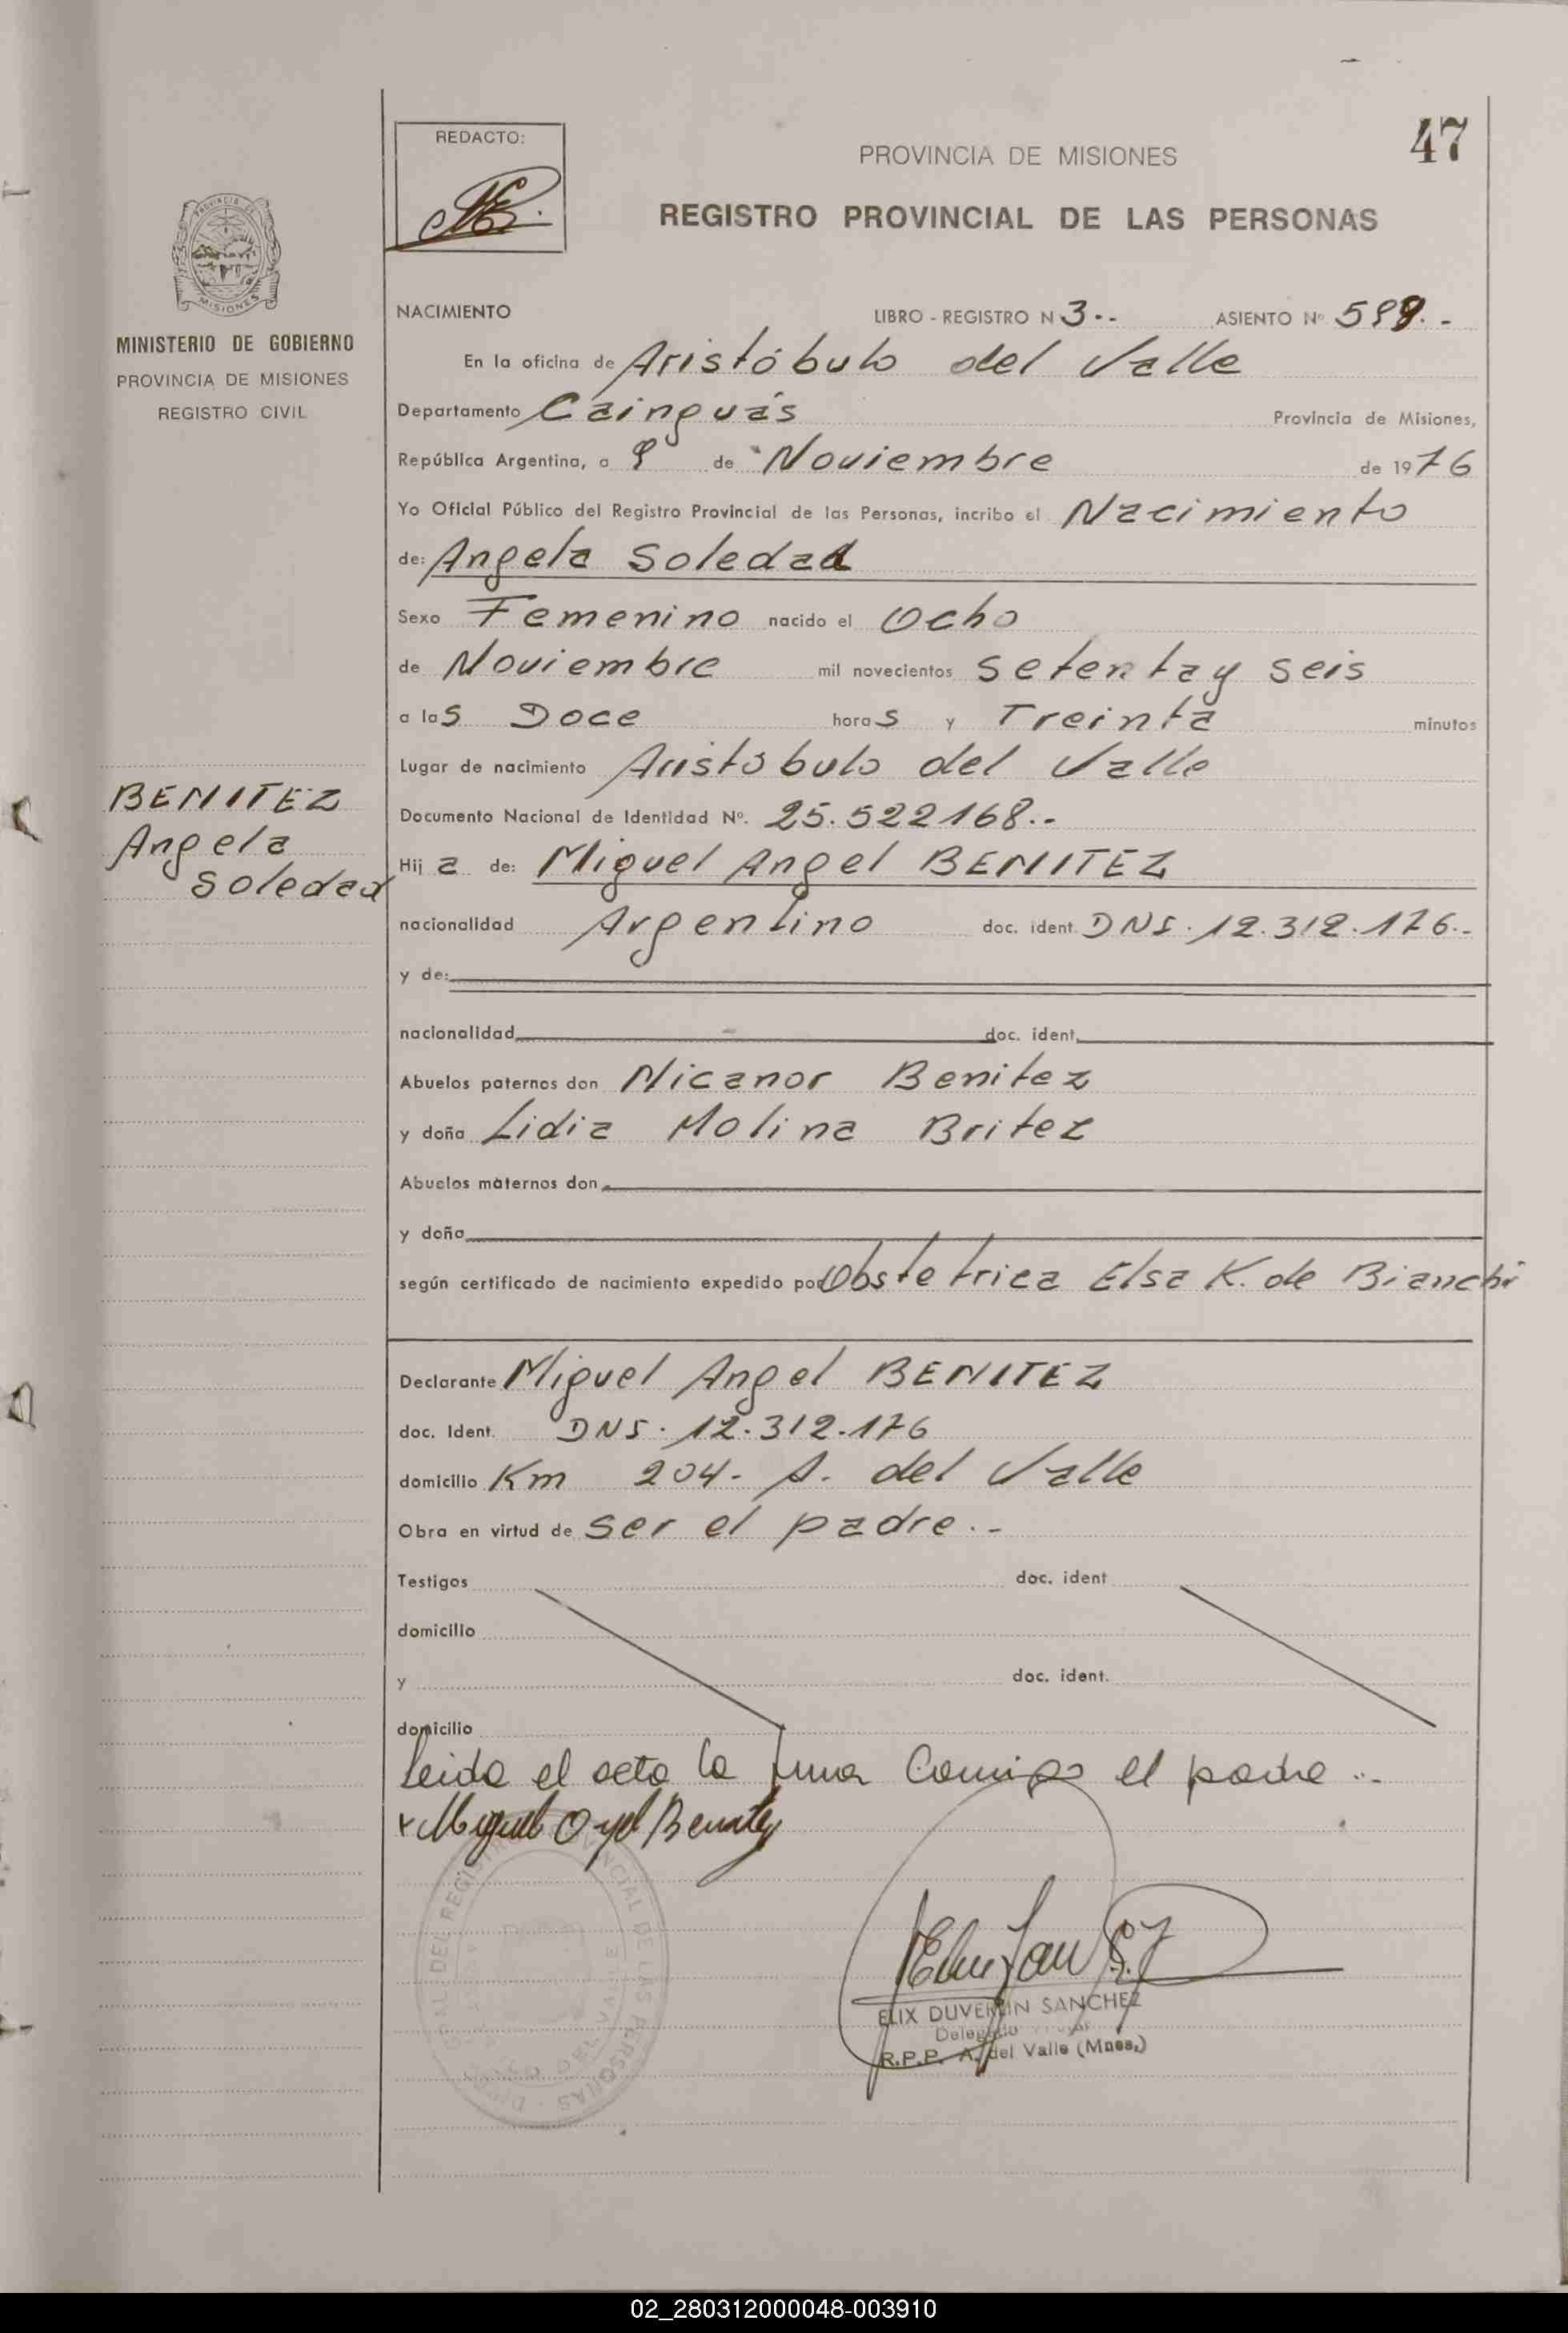 47
REDACTO:
PROVINCIA DE MISIONES
REGISTRO PROVINCIAL DE LAS PERSONAS
PROVINCIA DE
MISIONES
MINISTERIO DE GOBIERNO
PROVINCIA DE MISIONES
REGISTRO CIVIL
BENITEZ
Angela
Soledad
NACIMIENTO LIBRO - REGISTRO N 3.. ASIENTO Nº .-
En la oficina de Aristóbulo del Valle
Departamento Cainguás Provincia de Misiones,
República Argentina, a 9 de Noviembre de 1976
Yo Oficial Público del Registro Provincial de las Personas, incribo el Nacimiento
de: Angela Soledad
Sexo Femenino nacido el Ocho
de Noviembre mil novecientos setenta y seis
a las Doce horas y Treinta minutos
Lugar de nacimiento Aristóbulo del Valle
Documento Nacional de Identidad Nº. 25.522168.-
Hija de: Miguel Angel BENITEZ
nacionalidad Argentino doc. ident. DNI. 12.312.176.-
y de:
nacionalidad doc. ident.
Abuelos paternos don Nicanor Benitez
y doña Lidia Molina Britez
Abuelos maternos don
y doña
según certificado de nacimiento expedido por Obstetrica Elsa K. de Bianchi
Declarante Miguel Angel BENITEZ
doc. Ident. DNI. 12.312.176
domicilio Km 204- A. del Valle
Obra en virtud de ser el padre.-
Testigos doc. ident
domicilio
y doc. ident.
domicilio
Leida el acta la firma Conmigo el padre..
Miguel Angel Benitez
ELIX DUVERLIN SANCHEZ
Delegado
R.P.P. A. del Valle (Mnes.)
02_280312000048-003910